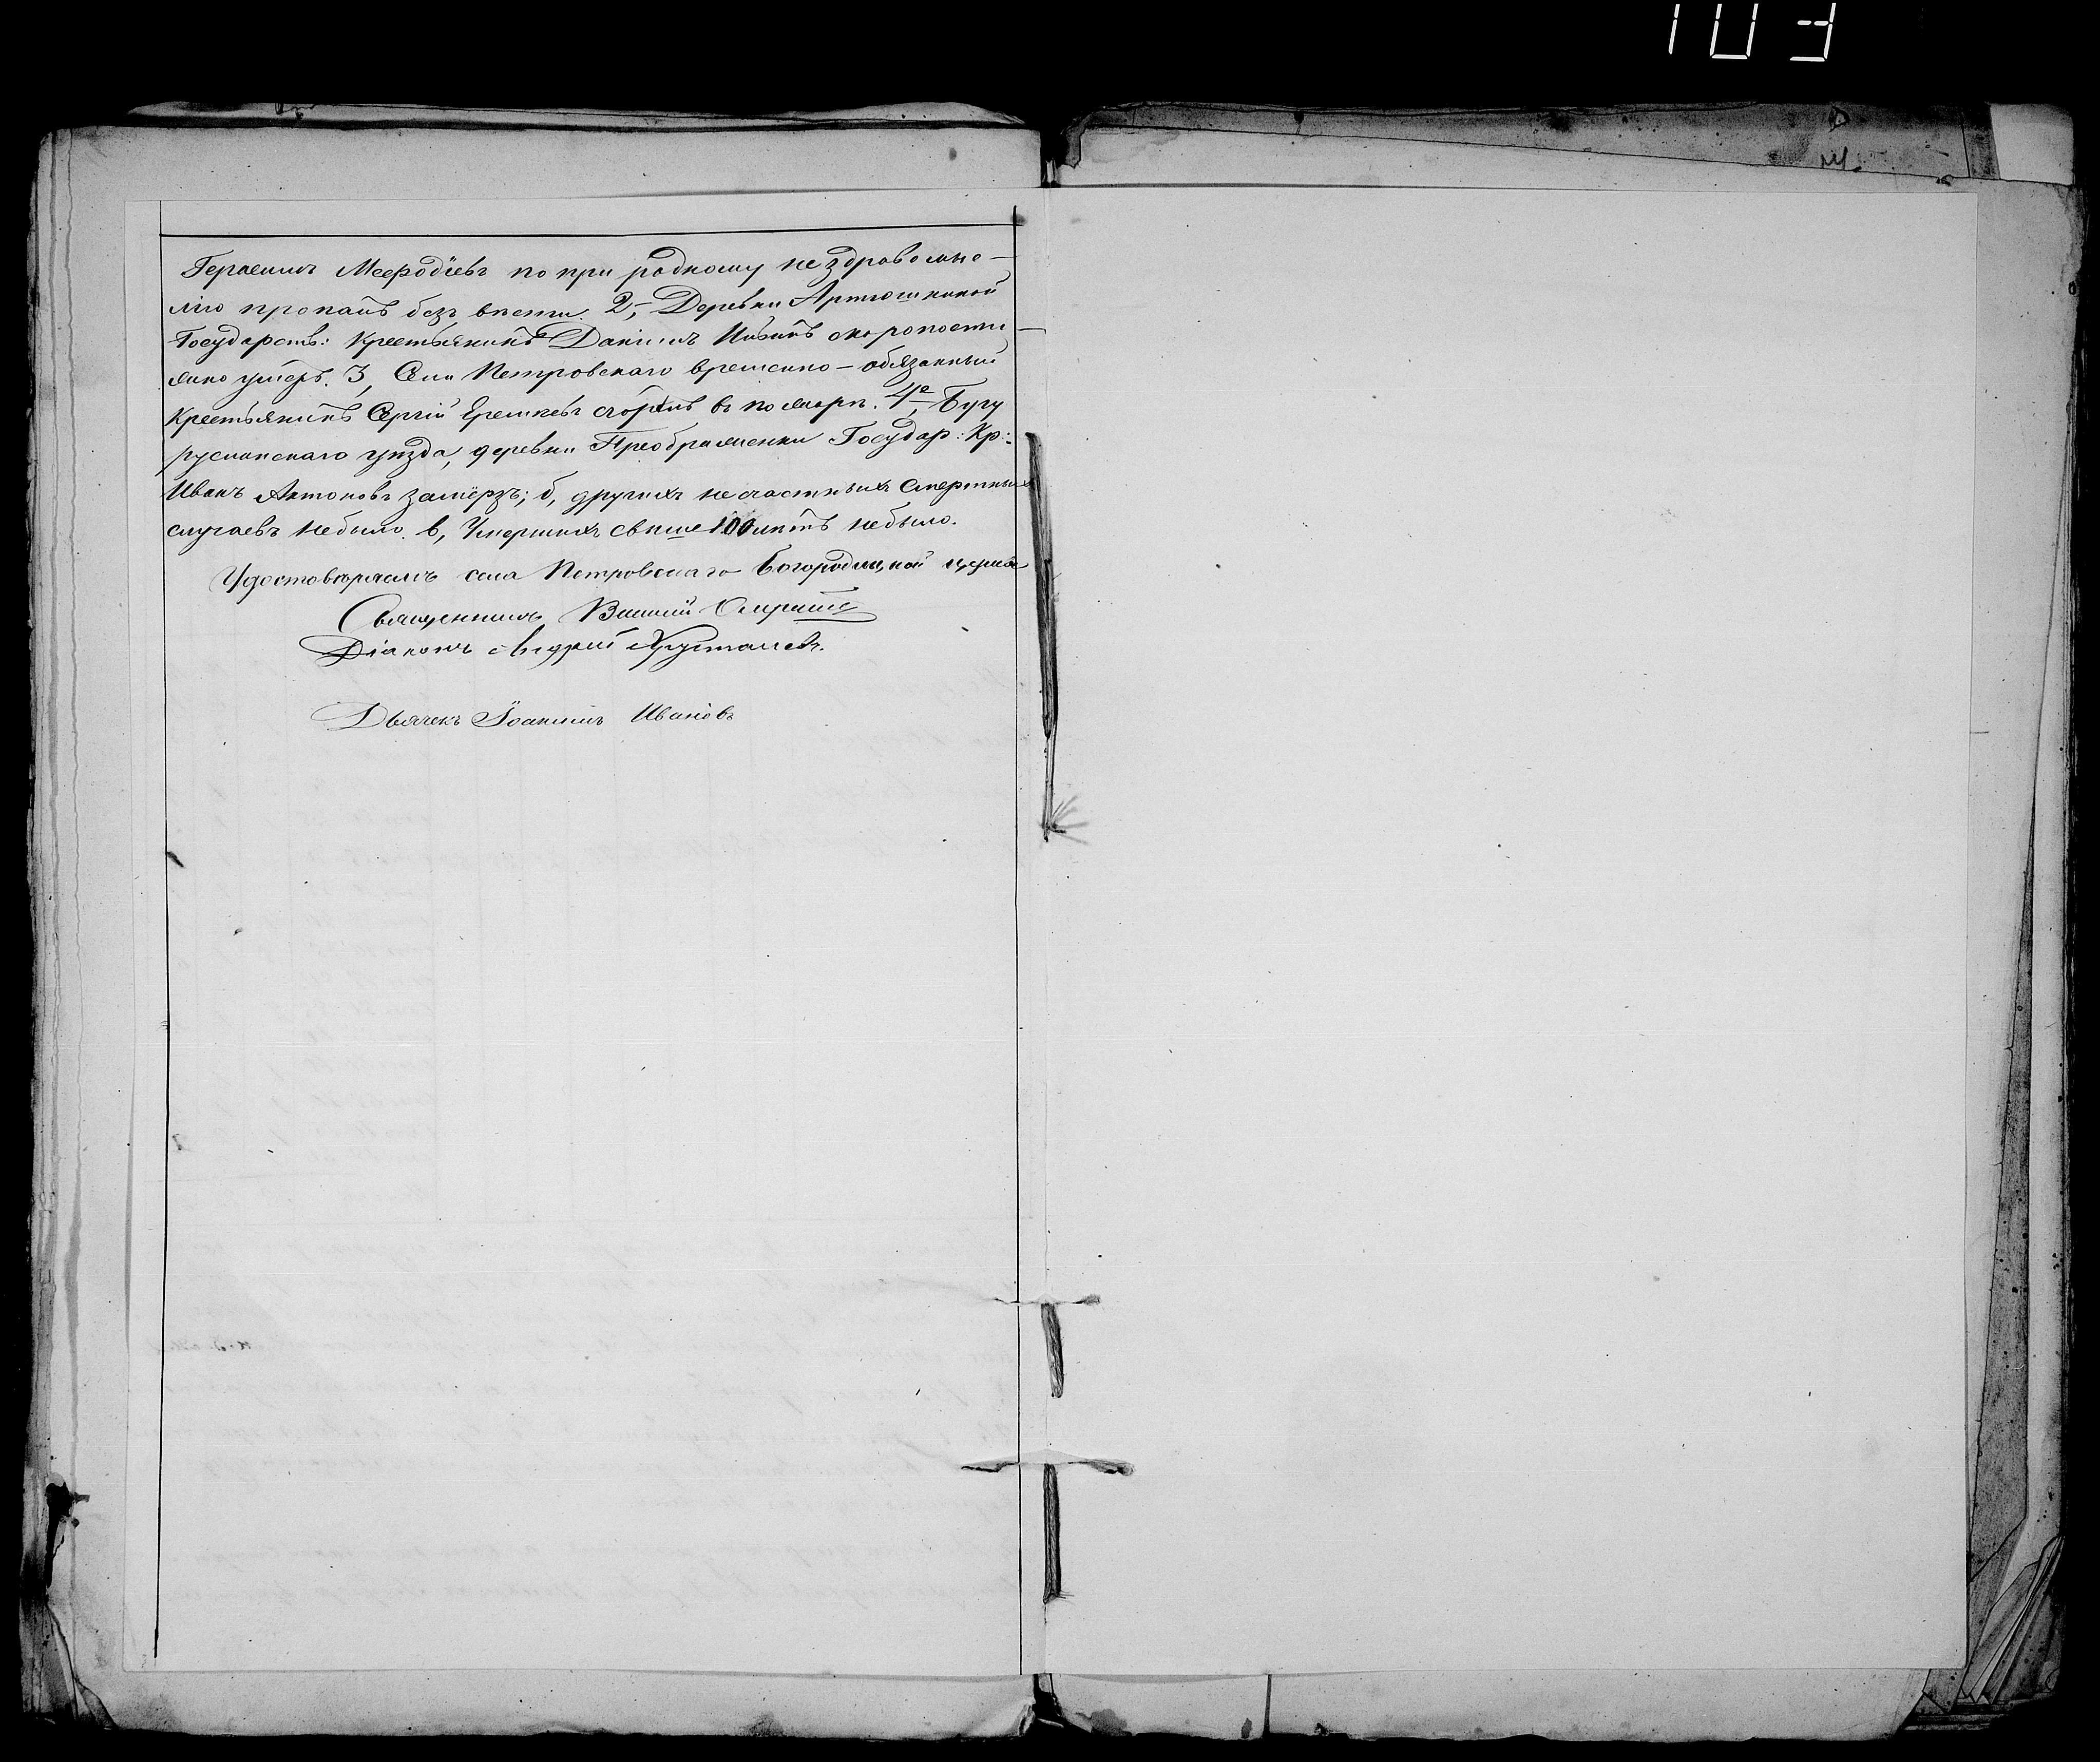 103
Герасимъ Мефодіевъ по при родному нездравомыс-
лію пропалъ безъ вѣсти. 2, Деревни Артюшкиной
Государств: Крестьянинъ Даніилъ скоропости-
жно умеръ. 3, Села Петровскаго временно-обязанный
Крестьянинъ Сергій сгорѣлъ въ пожарѣ. 4е, Бугу
русланскаго уѣзда, деревни Преображенки Государ: Кр:
Иванъ Антоновъ замерзъ; б, другихъ несчастныхъ смертныхъ
случаевъ небыло. в, Умершихъ свыше 100 лѣтъ небыло.
Удостовѣряемъ села Петровскаго Богородицкой церкви
Священникъ
Діаконъ Андрей Хрусталевъ.
Дьячекъ Іоаннъ Ивановъ